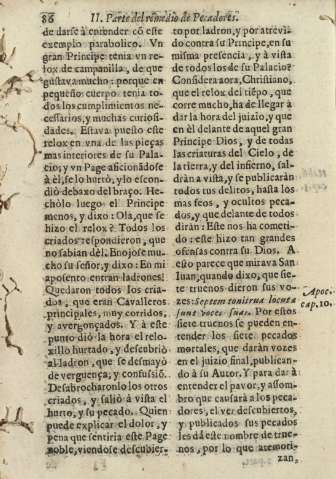 86 II. Parte del remedio de Pecadores.
de darse à entender cõ este
exemplo parabolico. Vn
gran Principe tenia vn re-
lox de campanilla, de que
gustava mucho: porque en
pequeño cuerpo tenia to-
dos los cumplimientos ne-
cessarios, y muchas curiosi-
dades. Estava puesto este
relox en vna de las pieças
mas interiores de su Pala-
cio; y vn Page aficionãdose
à èl, se lo hurtò, y lo escon-
diò debaxo del braço. He-
chòlo luego el Principe
menos, y dixo: Ola, que se
hizo el relox? Todos los
criados respondieron, que
no sabian dèl. Enojose mu-
cho su señor, y dixo: En mi
aposento entran ladrones?
Quedaron todos los cria-
dos, que eran Cavalleros
principales, muy corridos,
y avergonçados. Y à este
punto diò la hora el relo-
xillo hurtado, y descubriò
al ladron, que se desmayò
de verguença, y confusiõ.
Desabrocharonlo los otros
criados, y saliò à vista el
hurto, y su pecado. Quien
puede explicar el dolor, y
pena que sentiria este Page
noble, viendose descubier-
to por ladron, y por atrevi-
do contra su Principe, en su
misma presencia, y à vista
de todos los de su Palacio?
Considera aora, Christiano,
que el relox del tiẽpo, que
corre mucho, ha de llegar à
dar la hora del juizio, y que
en èl delante de aquel gran
Principe Dios, y de todas
las criaturas del Cielo, de
la tierra, y del infierno, sal-
dràn à vista, y se publicaràn
todos tus delitos, hasta los
mas feos, y ocultos peca-
dos, y que delante de todos
diràn: Este nos ha cometi-
do: este hizo tan grandes
ofensas contra su Dios. A
esto parece que mirava San
Iuan, quando dixo, que sie-
te truenos dieron sus vo-
zes: Septem tonitrua locuta
sunt voces suas. Por estos
siete truenos se pueden en-
tender los siete pecados
mortales, que daràn vozes
en el juizio final, publican-
do à su Autor. Y para dar à
entender el pavor, y assom-
bro que causarà à los peca-
dores, el ver descubiertos,
y publicados sus pecados
les dà este nombre de true-
nos, por lo que atemori-
zan,
Apoc.
cap. 10.